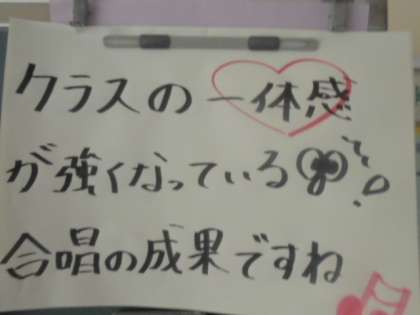 クラスの一体感
が強くなっている
合唱の成果ですね